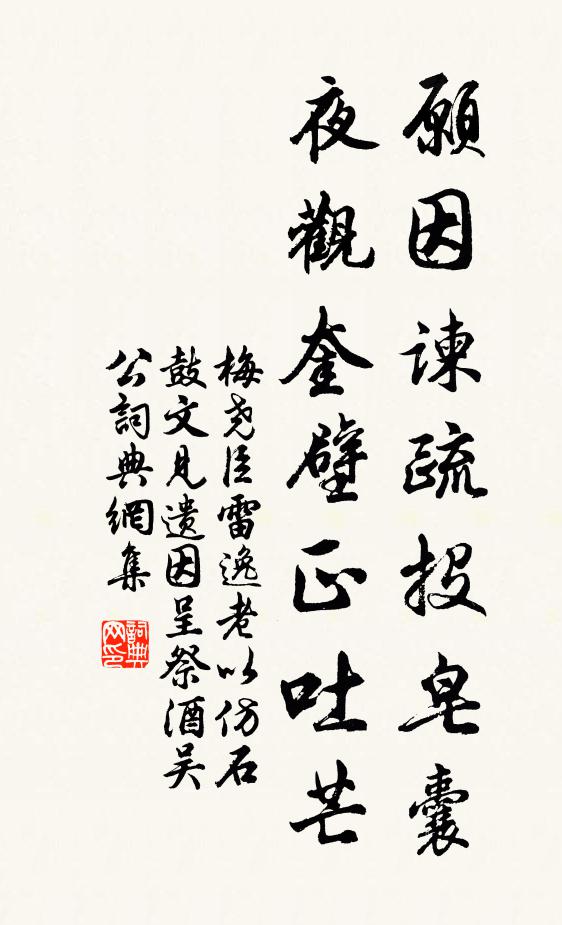 願因諫疏投皂囊
夜觀奎壁正吐芒
梅堯臣雷逸老以仿石
鼓文見遺因呈祭酒吴
公詞典網集
詞典网印